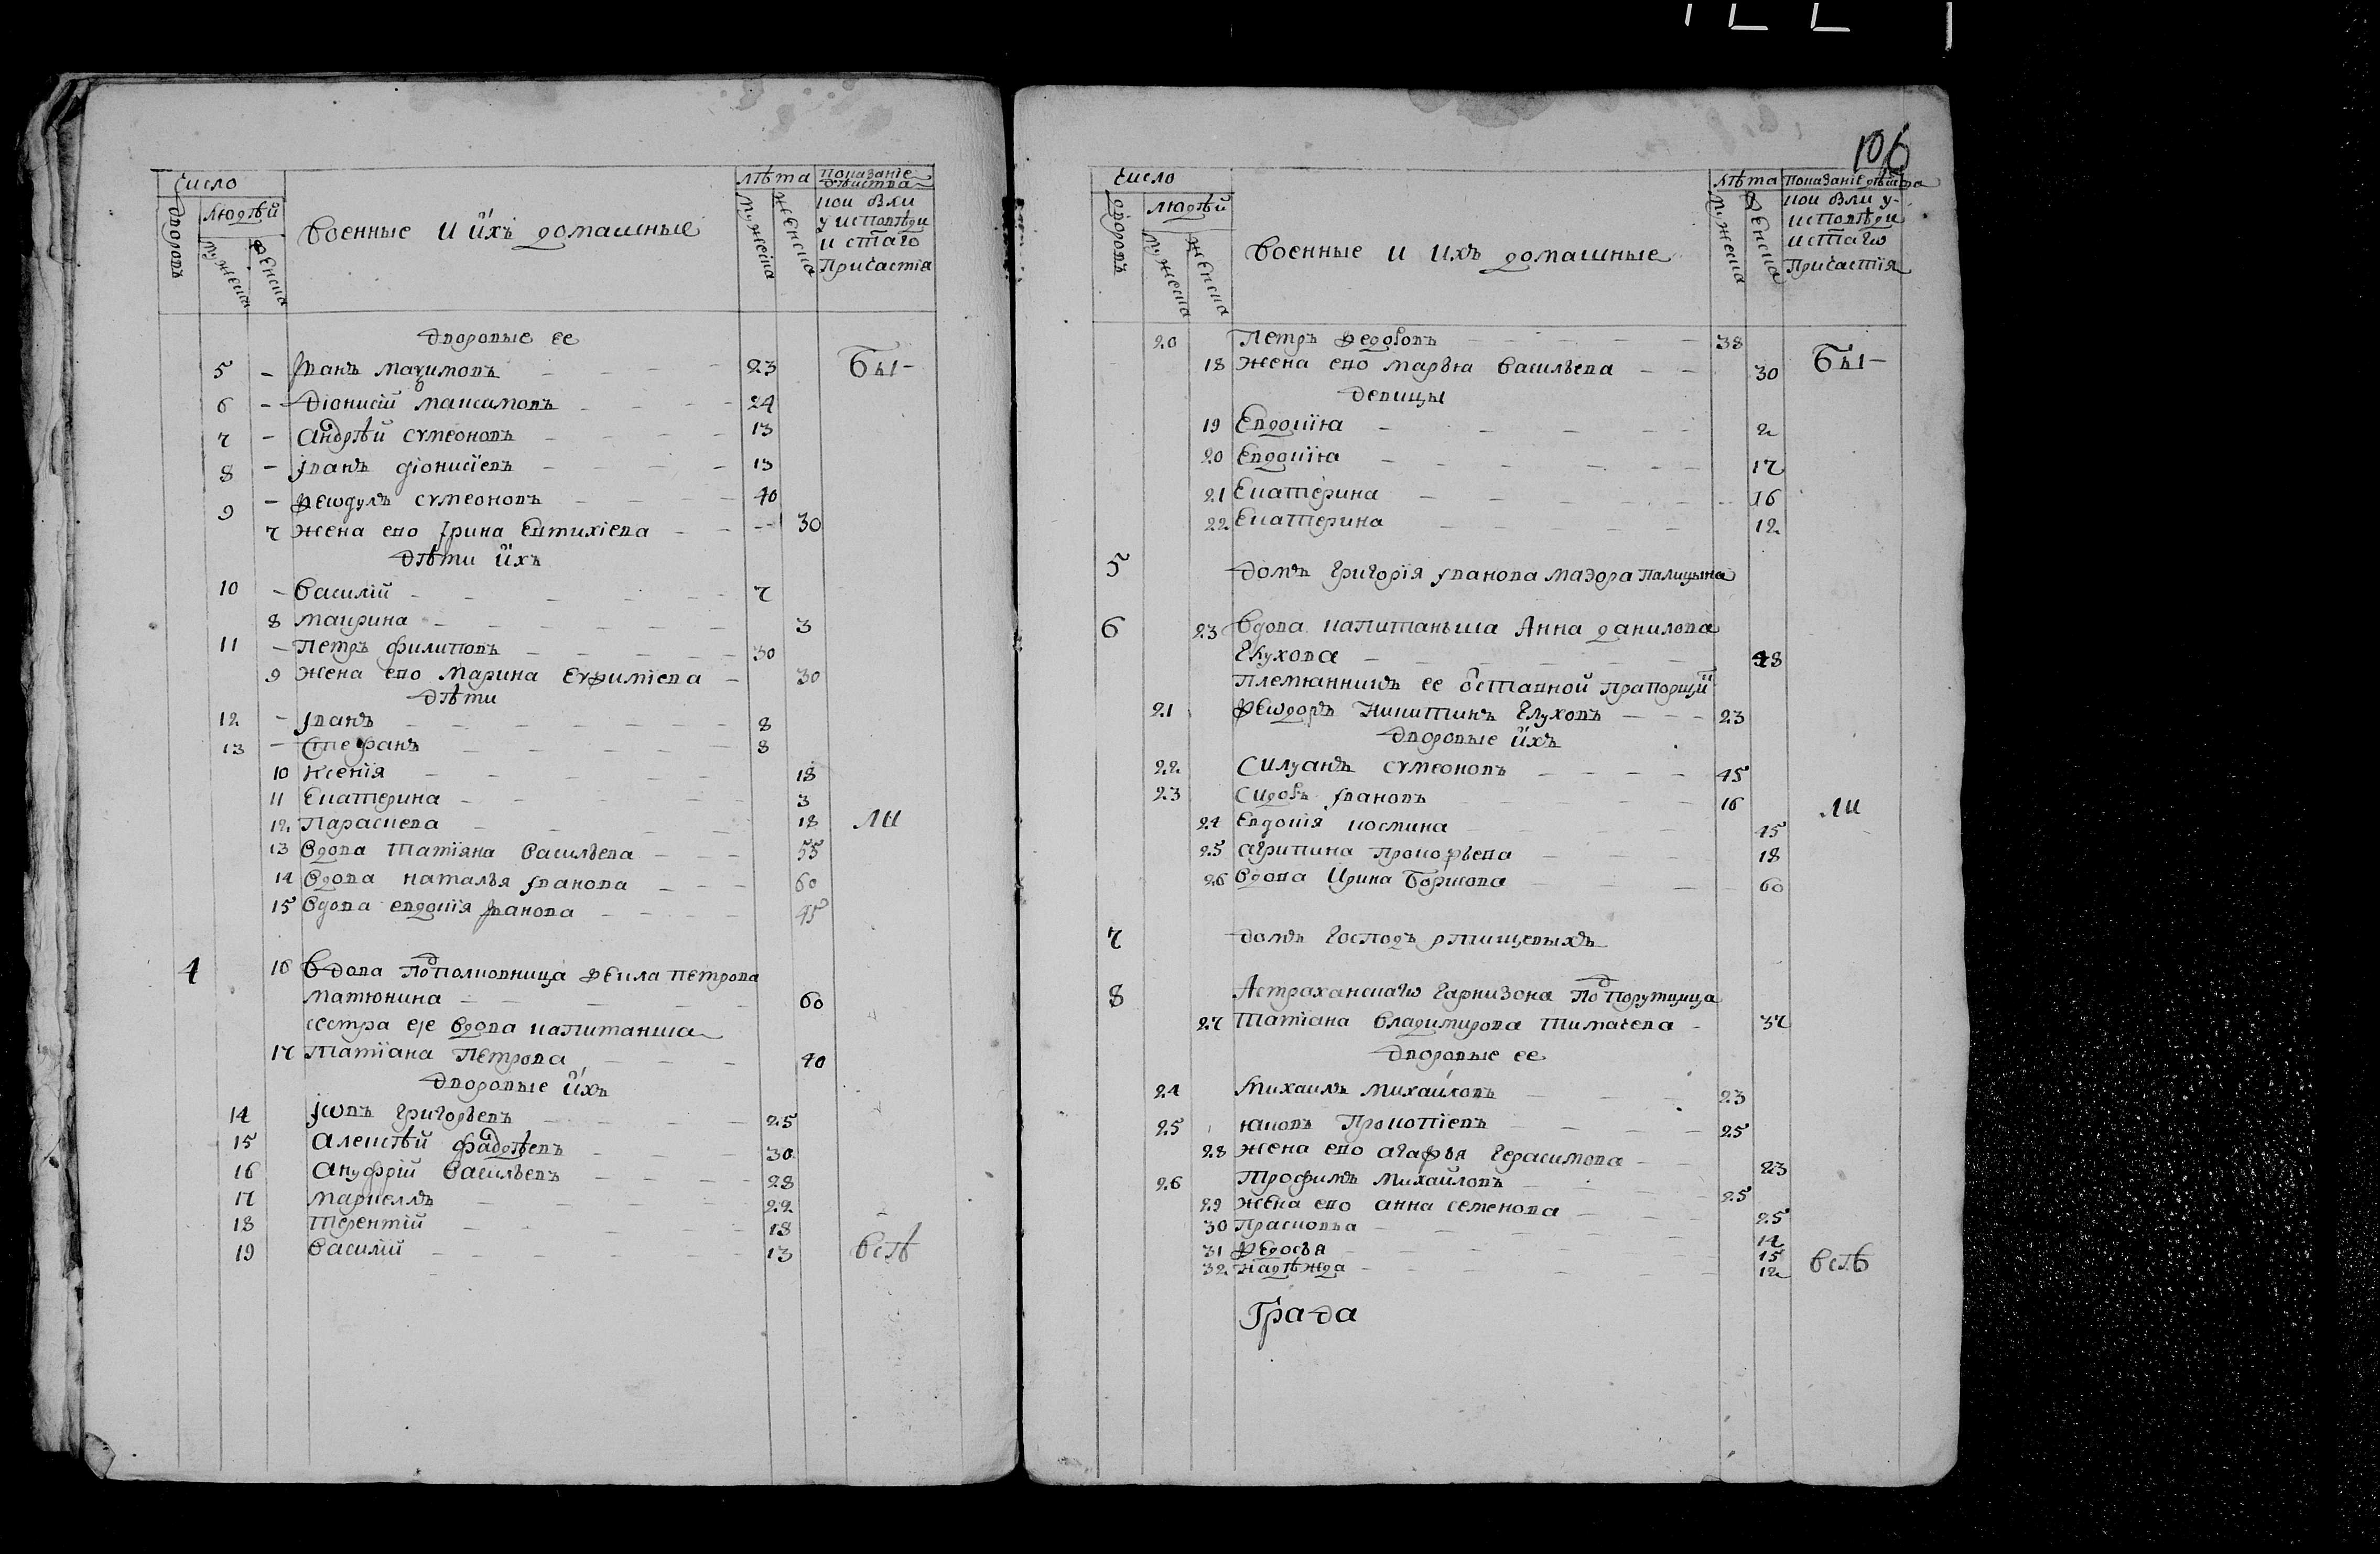 Число
дворовъ
людѣй
мужеска
женска
Военные и ихъ домашные
лѣта
мужеска
женска
Показанїе
дѣиства
кои вли
у исповѣди
и стаго
Причастїя
Дворовые ее
5 – Іванъ Маѯимовъ 23 Бы-
6 – Дїонисїй Максимовъ 24
7 – Андрѣй сумеоновъ 13
8 – Іванъ дїонисїевъ 13
9 – Ѳеѡдулъ сумеоновъ 40
7 жена ево Ірина Евтихїева 30
Дѣти ихъ
10 – Василїй 7
8 Маврина 3
11 – Петръ филиповъ 30
9 жена ево Марина Еуѳимїева 30
Дѣти
12 – Іванъ 8
13 – Стеѳанъ 8
10 Ксенїя 18
11 Екатерина 3
12 Параскева 18 ли
13 Вдова Татїяна Васильева 55
14 Вдова наталья Іванова 60
15 Вдова евдокїя Іванова 45
4 16 Вдова Подполковница Ѳекла Петрова
Матюнина 60
сестра еје вдова капитанша
17 Татїана Петрова 40
Дворовые ихъ
14 Іѡвъ Григорьевъ 25
15 Алексѣй Фадѣевъ 30
16 Ануфрїй Васильевъ 28
17 Маркеллъ 22
18 Терентїй 18
19 Василїй 13 всѣ
106
Число
дворовъ
людѣй
мужеска
женска
Военные и ихъ домашные
лѣта
мужеска
женска
Показанїе дѣйства
кои вли у-
исповѣди
и стагѡ
Причастїя
20 Петръ Ѳедоровъ 38
18 Жена ево марѣя Васильева 30 Бы-
девицы
19 Евдокїя 2
20 Евдокїя 17
21 Екатерина 16
22 Екатерина 12
5 Домъ Григорїя Іванова Маэора Палицына
6 23 Вдова капитаньша Анна данилова
Глухова 48
Племянникъ ее отставной Прапорщикъ
21 Ѳеѡдоръ Никитинъ Глуховъ 23
Дворовые ихъ
22 Силуанъ сумеоновъ 45
23 Сидоръ Івановъ 16
24 Евдокїя космина 45 ли
25 агрипина Прокоѳьева 18
26 Вдова Ирина Борисова 60
7 Домъ Господъ ртищевыхъ
8 Астраханскагѡ гарнизона Подпорутчица
27 Татїана Владимирова Тимачева 37
Дворовые ее
24 Михаилъ Михайловъ 23
25 яковъ Прокопїевъ 25
28 жена ево агаѳья Герасимова 23
26 Трофимъ Михайловъ 25
29 жена ево анна семенова 25
30 Прасковья 14
31 Ѳедосья 15
32 надѣжда 12 всѣ
Града